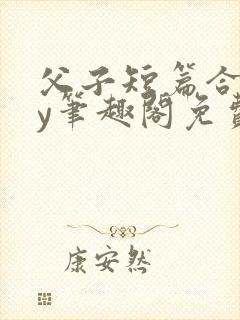 父子短篇合
y笔趣阁免费
康安然